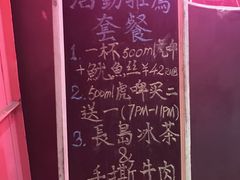 活動推薦
套餐
1. 一杯500ml虎啤
+魷魚絲羊42
2. 500ml虎啤买二
送一(7PM-11PM)
3. 長島冰茶
&
手撕牛肉